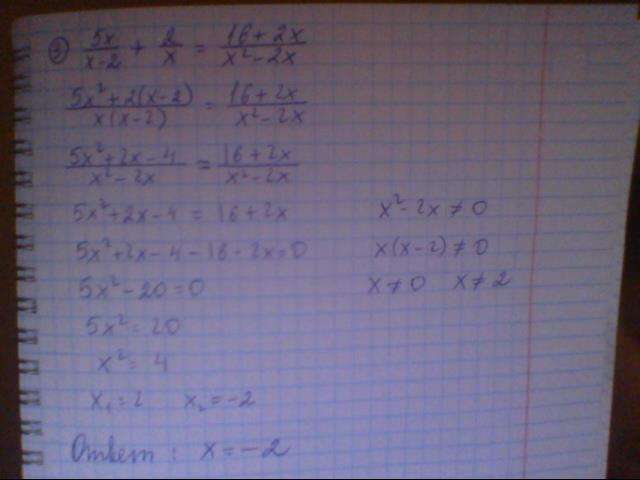 3) 5x/(x-2) + 2/x = (16+2x)/(x²-2x)
(5x²+2(x-2))/(x(x-2)) = (16+2x)/(x²-2x)
(5x²+2x-4)/(x²-2x) = (16+2x)/(x²-2x)
5x²+2x-4 = 16+2x
x²-2x≠0
5x²+2x-4-16-2x=0
x(x-2)≠0
5x²-20=0
x≠0 x≠2
5x²=20
x²=4
x₁=2 x₂=-2
Ответ: x=-2